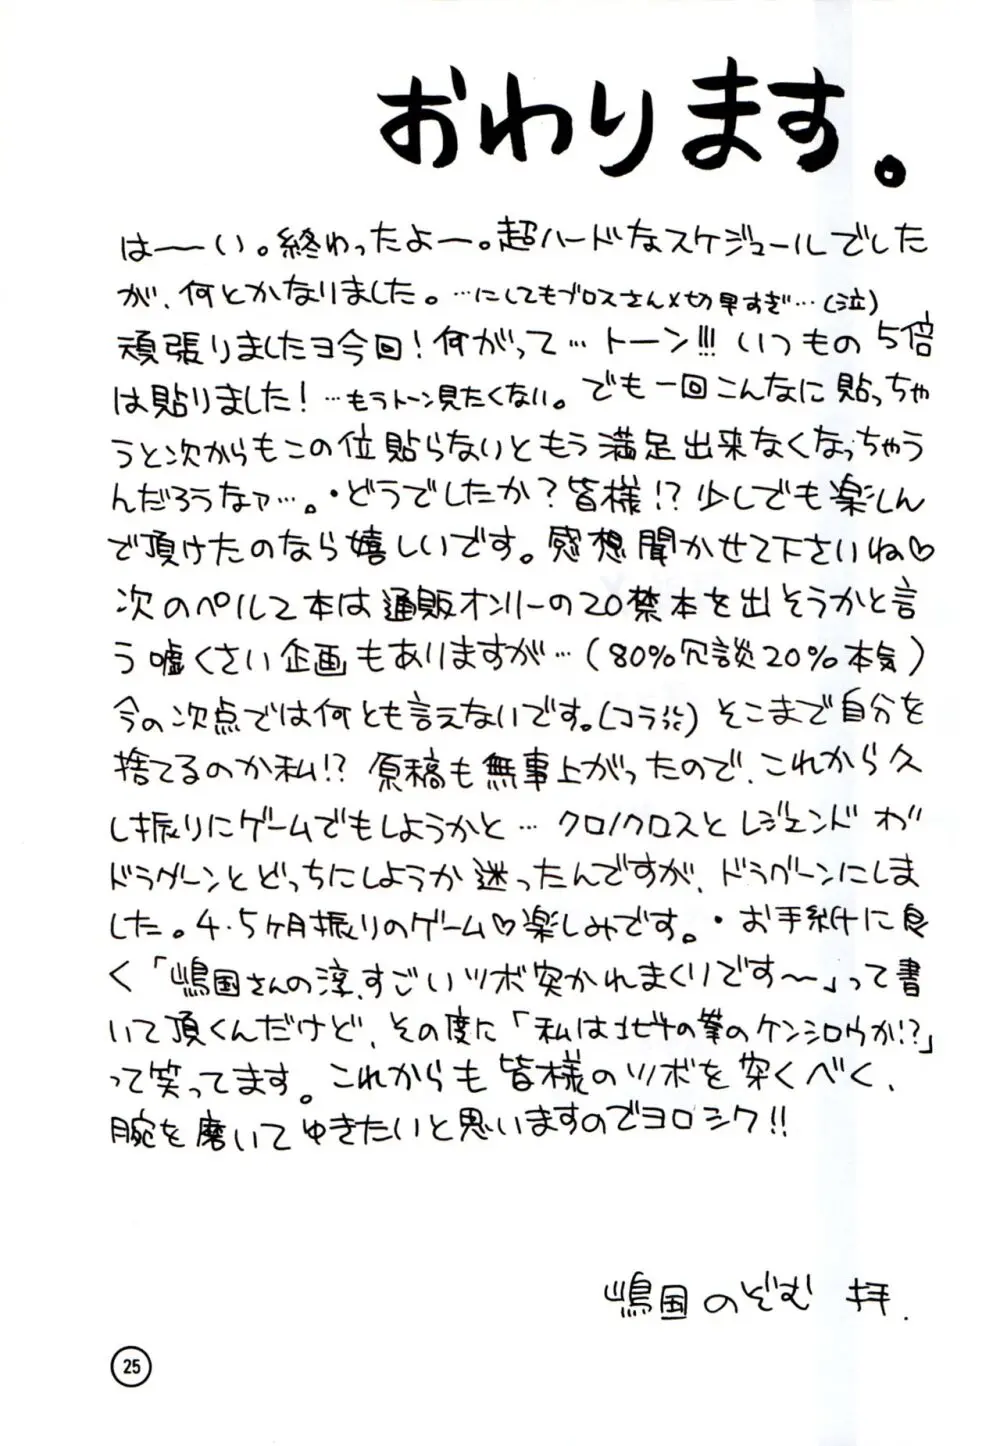 おわります。
はーい。終わったよー。超ハードなスケジュールでした
が、何とかなりました。…にしてもブロスさん〆切早すぎ…(泣)
頑張りましたヨ今回！何がって…トーン!!! いつもの5倍
は貼りました！…もうトーン見たくない。でも一回こんなに貼っちゃ
うと次からもこの位貼らないともう満足出来なくなっちゃう
んだろうなァ…。・どうでしたか？皆様!? 少しでも楽しん
で頂けたのなら嬉しいです。感想聞かせて下さいね♡
次のペルソ本は通販オンリーの20禁本を出そうかと言
う嘘くさい企画もありますが…(80%冗談20%本気)
今の次点では何とも言えないです。(コラ) そこまで自分を
捨てるのか私!? 原稿も無事上がったので、これから久
し振りにゲームでもしようかと…クロノクロスとレジェンドオブ
ドラグーンとどっちにしようか迷ったんですが、ドラグーンにしま
した。4・5ヶ月振りのゲーム♡楽しみです。・お手紙に良
く「嶋国さんの淳、すごいツボ突かれまくりです〜」って書
いて頂くんだけど、その度に「私は北斗の拳のケンシロウか!?」
って笑ってます。これからも皆様のツボを突くべく、
腕を磨いてゆきたいと思いますのでヨロシク!!
嶋国のぞむ 拝.
25